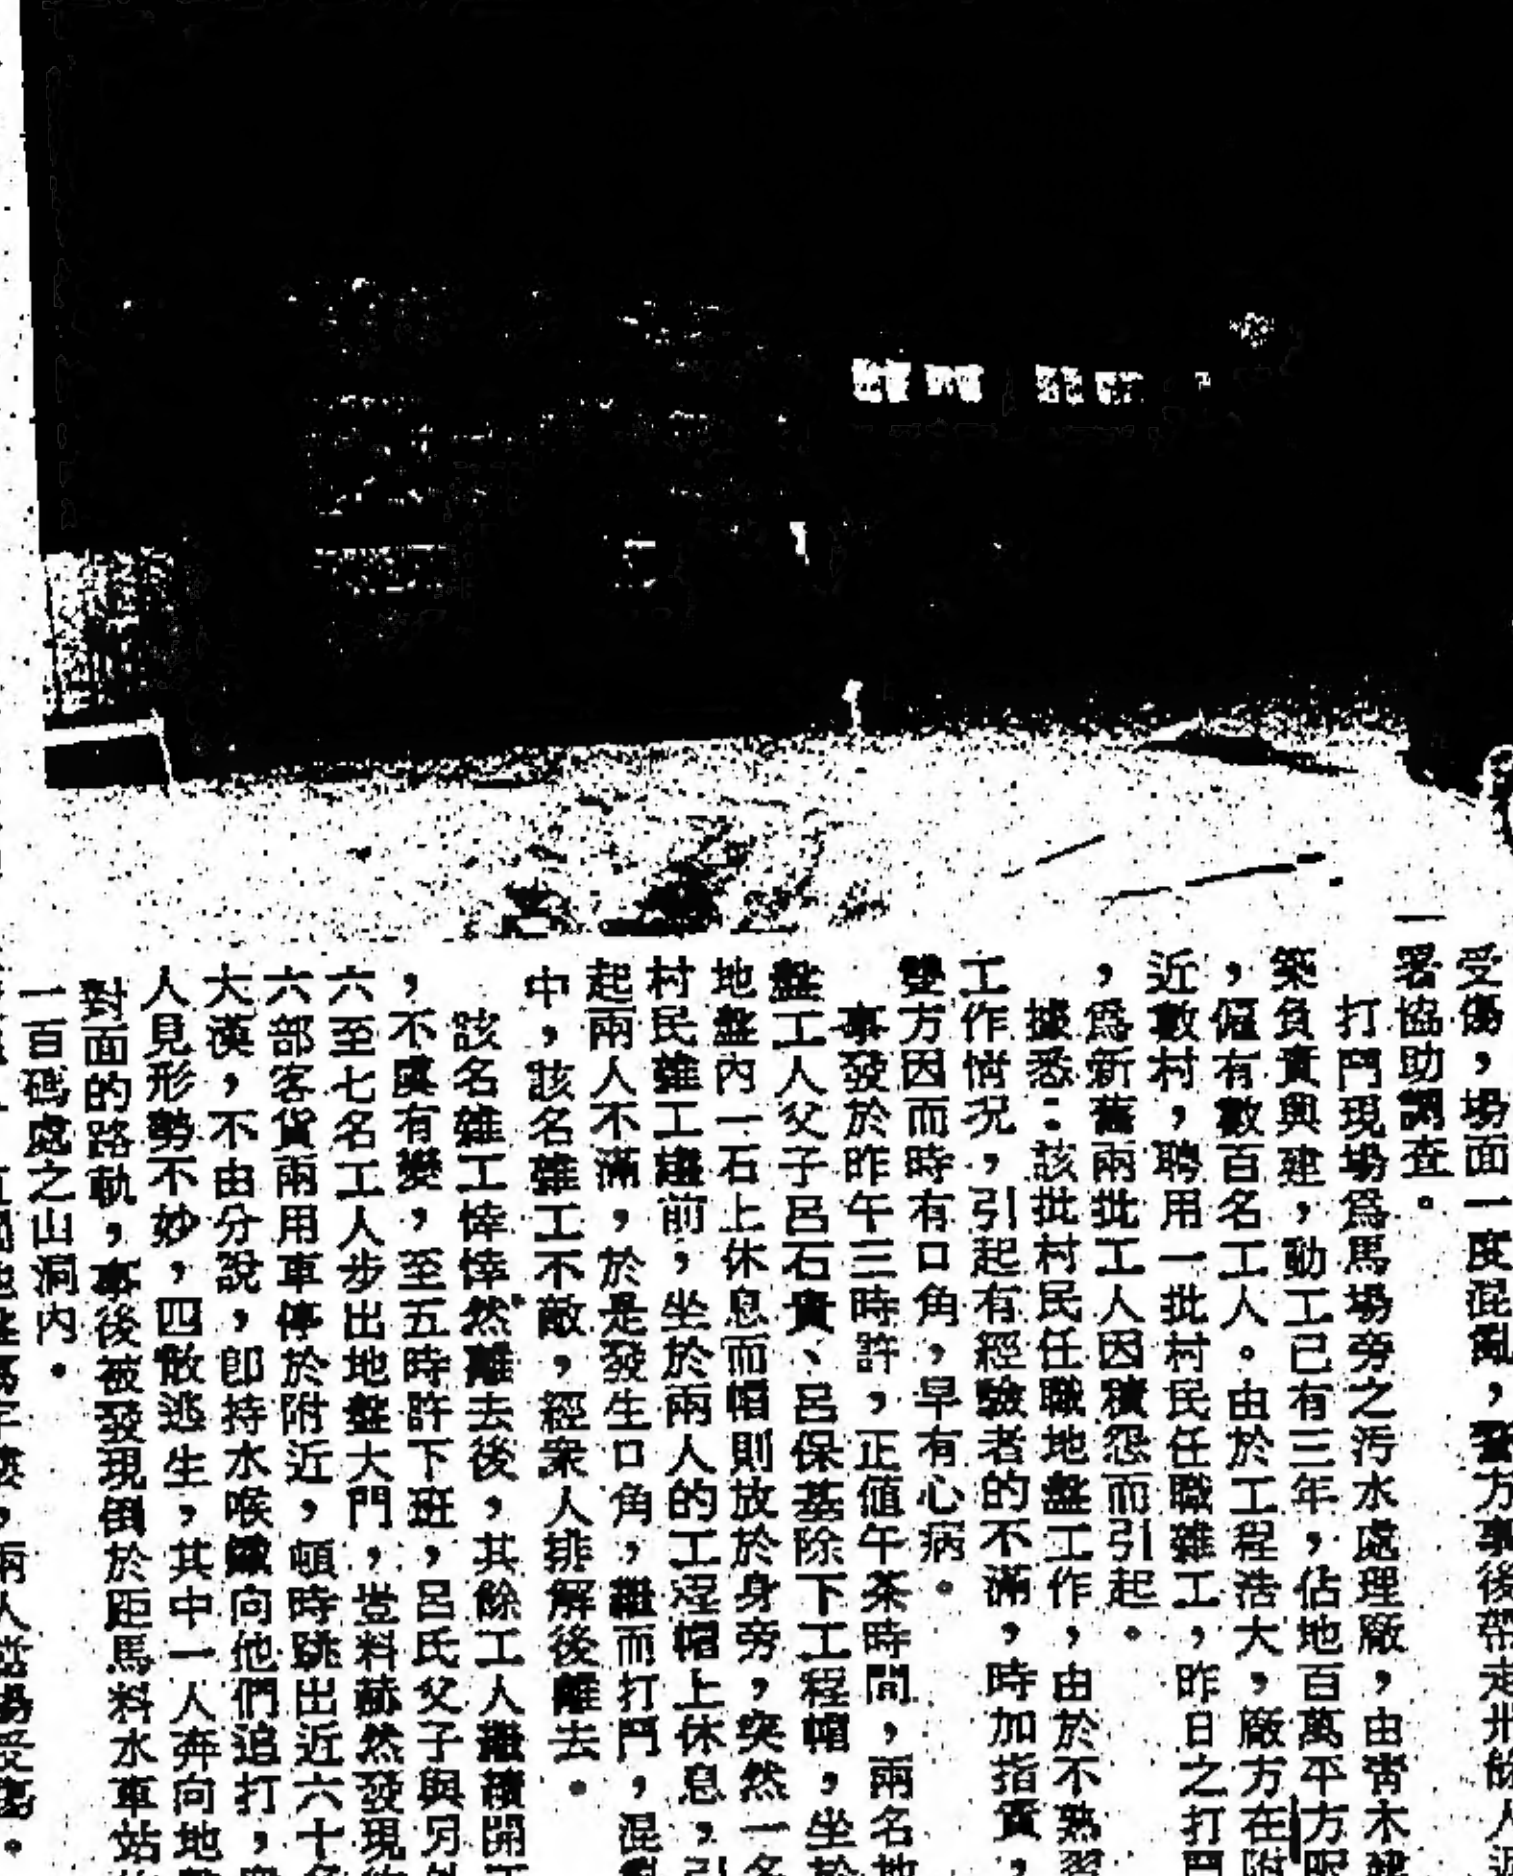 受傷，場面一度混亂，警方事後帶走卅餘人返
署協助調查。
打鬥現場爲馬場旁之污水處理廠，由靑木建
築負責興建，動工已有三年，佔地百萬平方呎
，僱有數百名工人。由於工程浩大，廠方在附
近數村，聘用一批村民任職雜工，昨日之打鬥
，爲新舊兩批工人因積怨而引起。
據悉：該批村民任職地盤工作，由於不熟習
工作情況，引起有經驗者的不滿，時加指責，
雙方因而時有口角，早有心病。
事發於昨午三時許，正値午茶時間，兩名地
盤工人父子呂石貴、呂保基除下工程帽，坐於
地盤內一石上休息而帽則放於身旁，突然一名
村民雜工趨前，坐於兩人的工程帽上休息，引
起兩人不滿，於是發生口角，繼而打鬥，混亂
中，該名雜工不敵，經衆人排解後離去。
該名雜工悻悻然離去後，其餘工人繼續開工
，不虞有變，至五時許下班，呂氏父子與另外
六至七名工人步出地盤大門，豈料赫然發現約
六部客貨兩用車停於附近，頓時跳出近六十名
大漢，不由分說，卽持水喉鐵向他們追打，衆
人見形勢不妙，四散逃生，其中一人奔向地盤
對面的路軌，事後被發現倒於距馬料水車站約
一百碼處之山洞內。
兩人當場受傷。